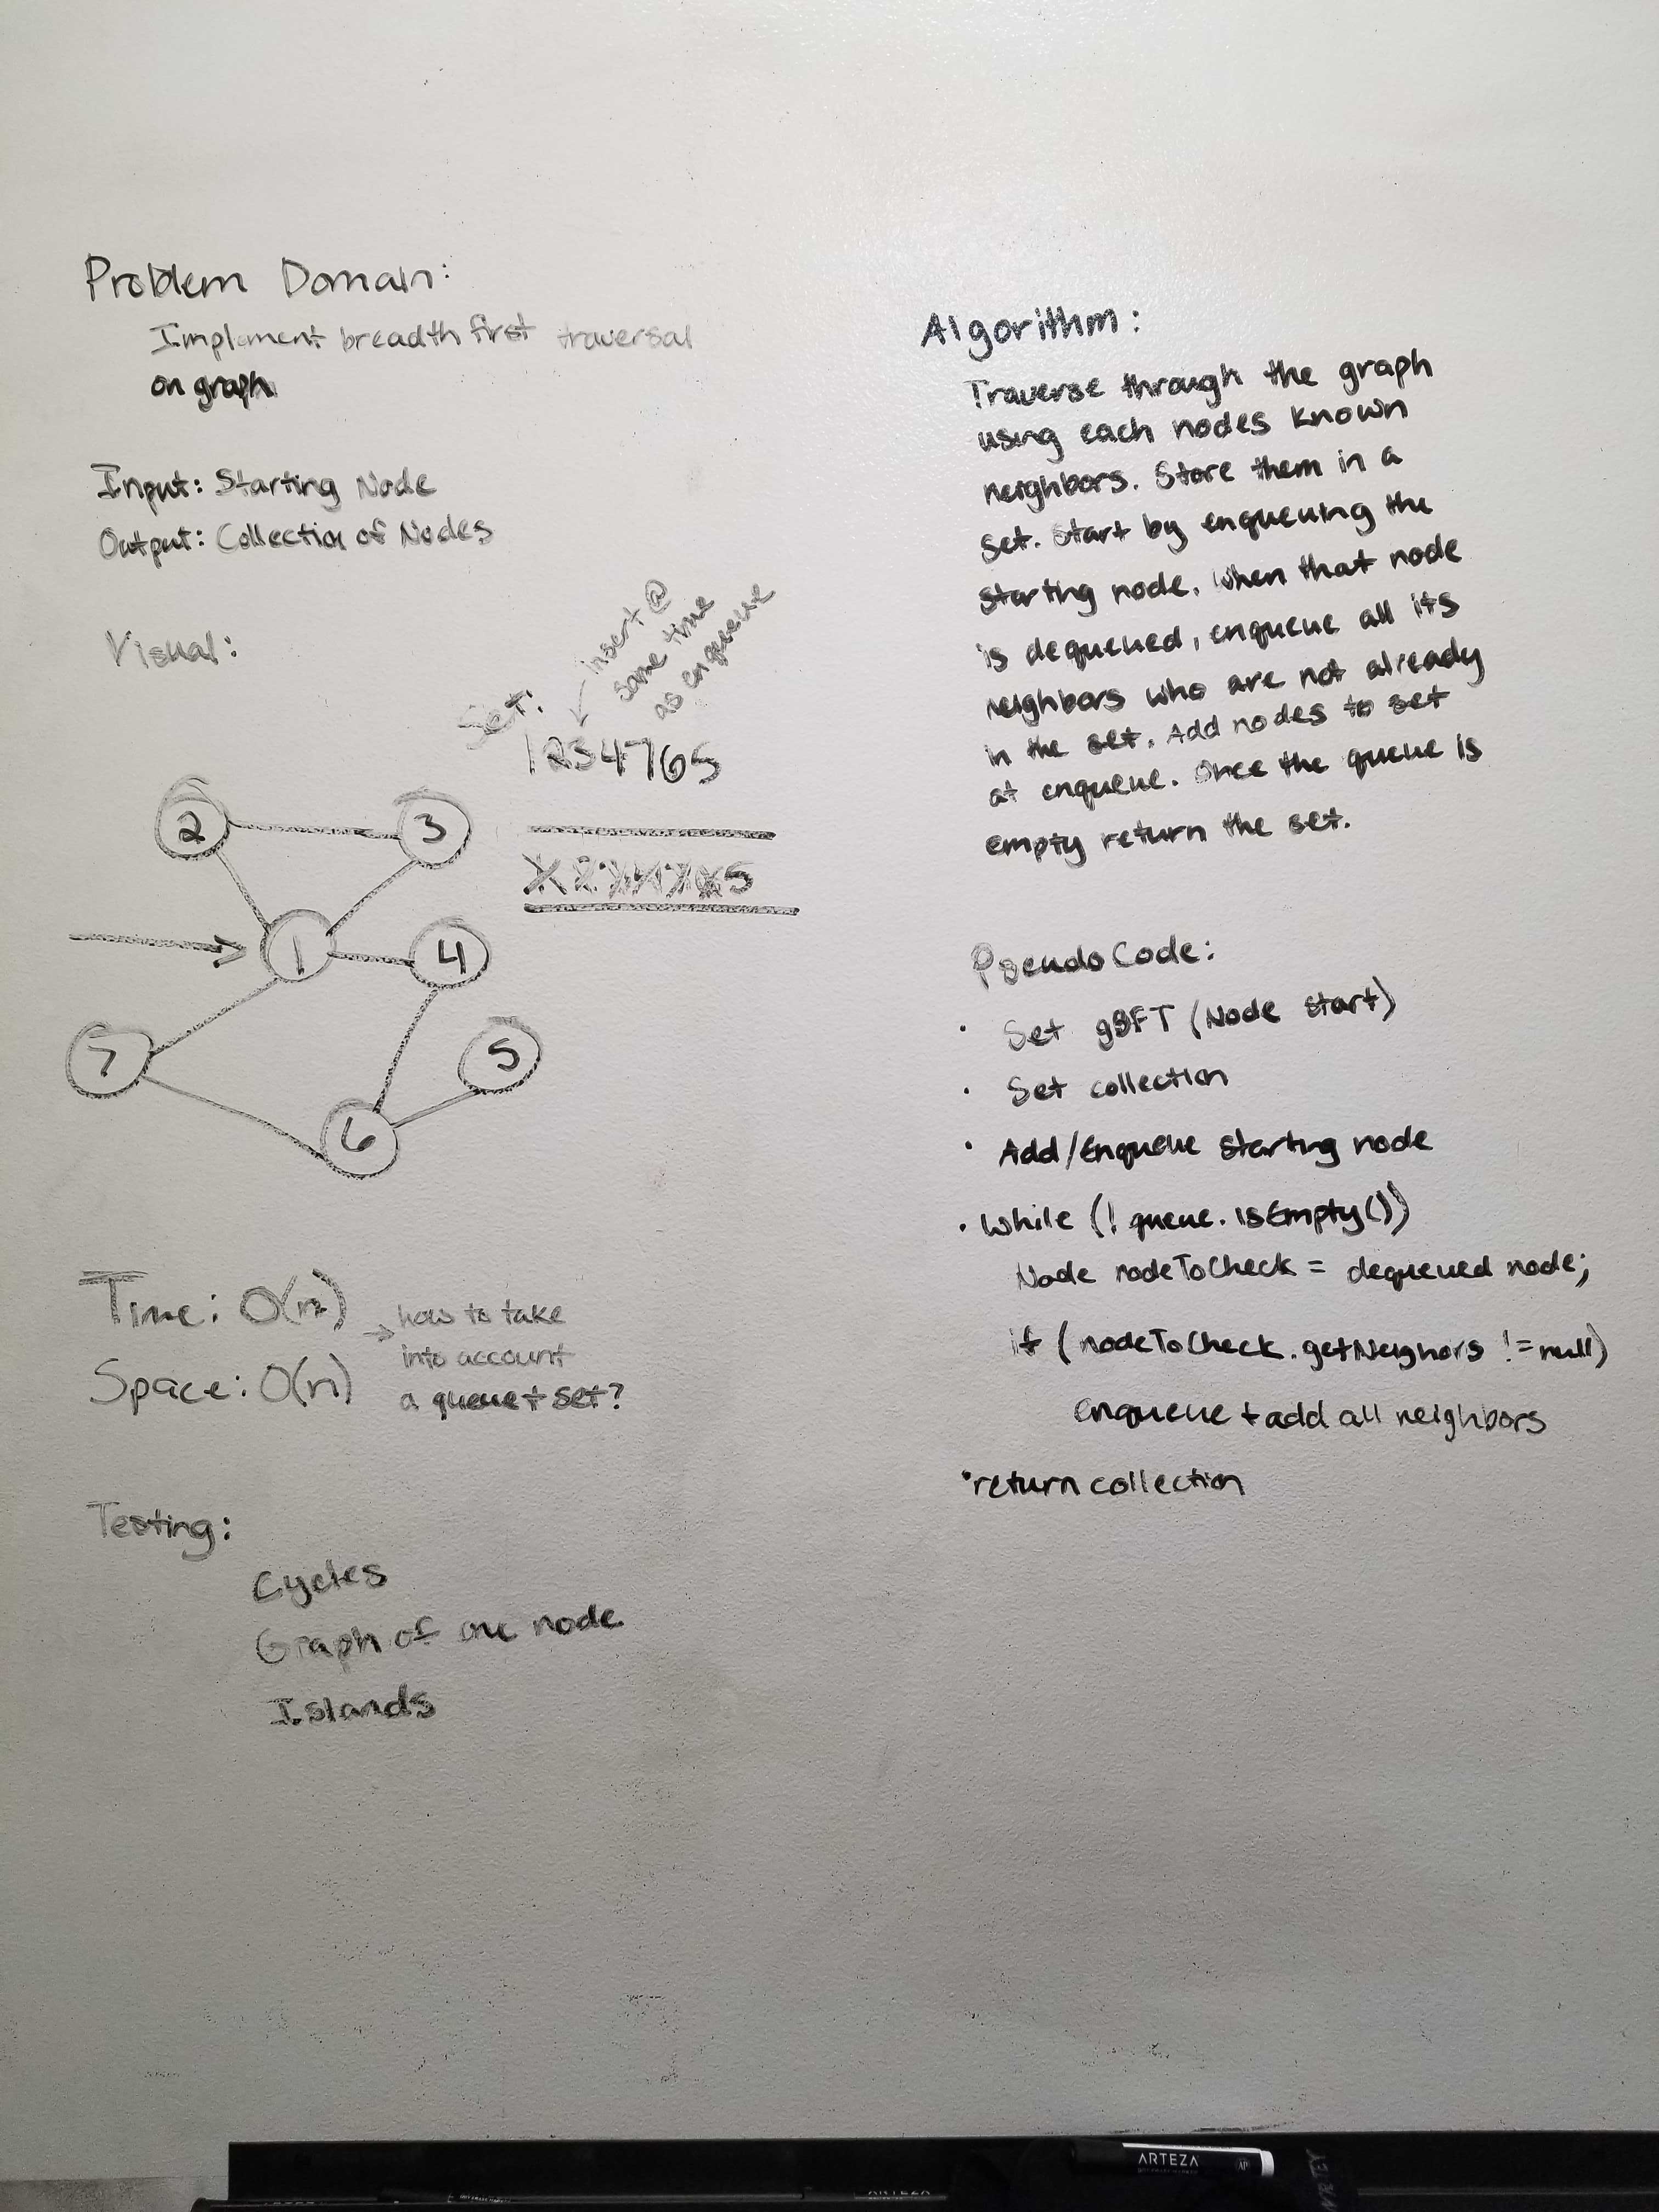 Problem Domain:
Implement breadth first traversal
on graph
Input: Starting Node
Output: Collection of Nodes
Visual:
Set:
insert @
same time
as enqueue
1234765
2
3
1
4
7
5
6
X 2 3 4 7 6 5
Time: O(n²)
Space: O(n)
→ how to take
into account
a queue + set?
Testing:
Cycles
Graph of one node
Islands
Algorithm:
Traverse through the graph
using each nodes known
neighbors. Store them in a
set. Start by enqueuing the
starting node. When that node
is dequeued, enqueue all its
neighbors who are not already
in the set. Add nodes to set
at enqueue. Once the queue is
empty return the set.
Pseudo Code:
· Set gBFT (Node start)
· Set collection
· Add/Enqueue starting node
· While (! queue.isEmpty())
Node nodeToCheck = dequeued node;
if (nodeToCheck.getNeighors != null)
enqueue + add all neighbors
· return collection
ARTEZA
AP
ARTEZA